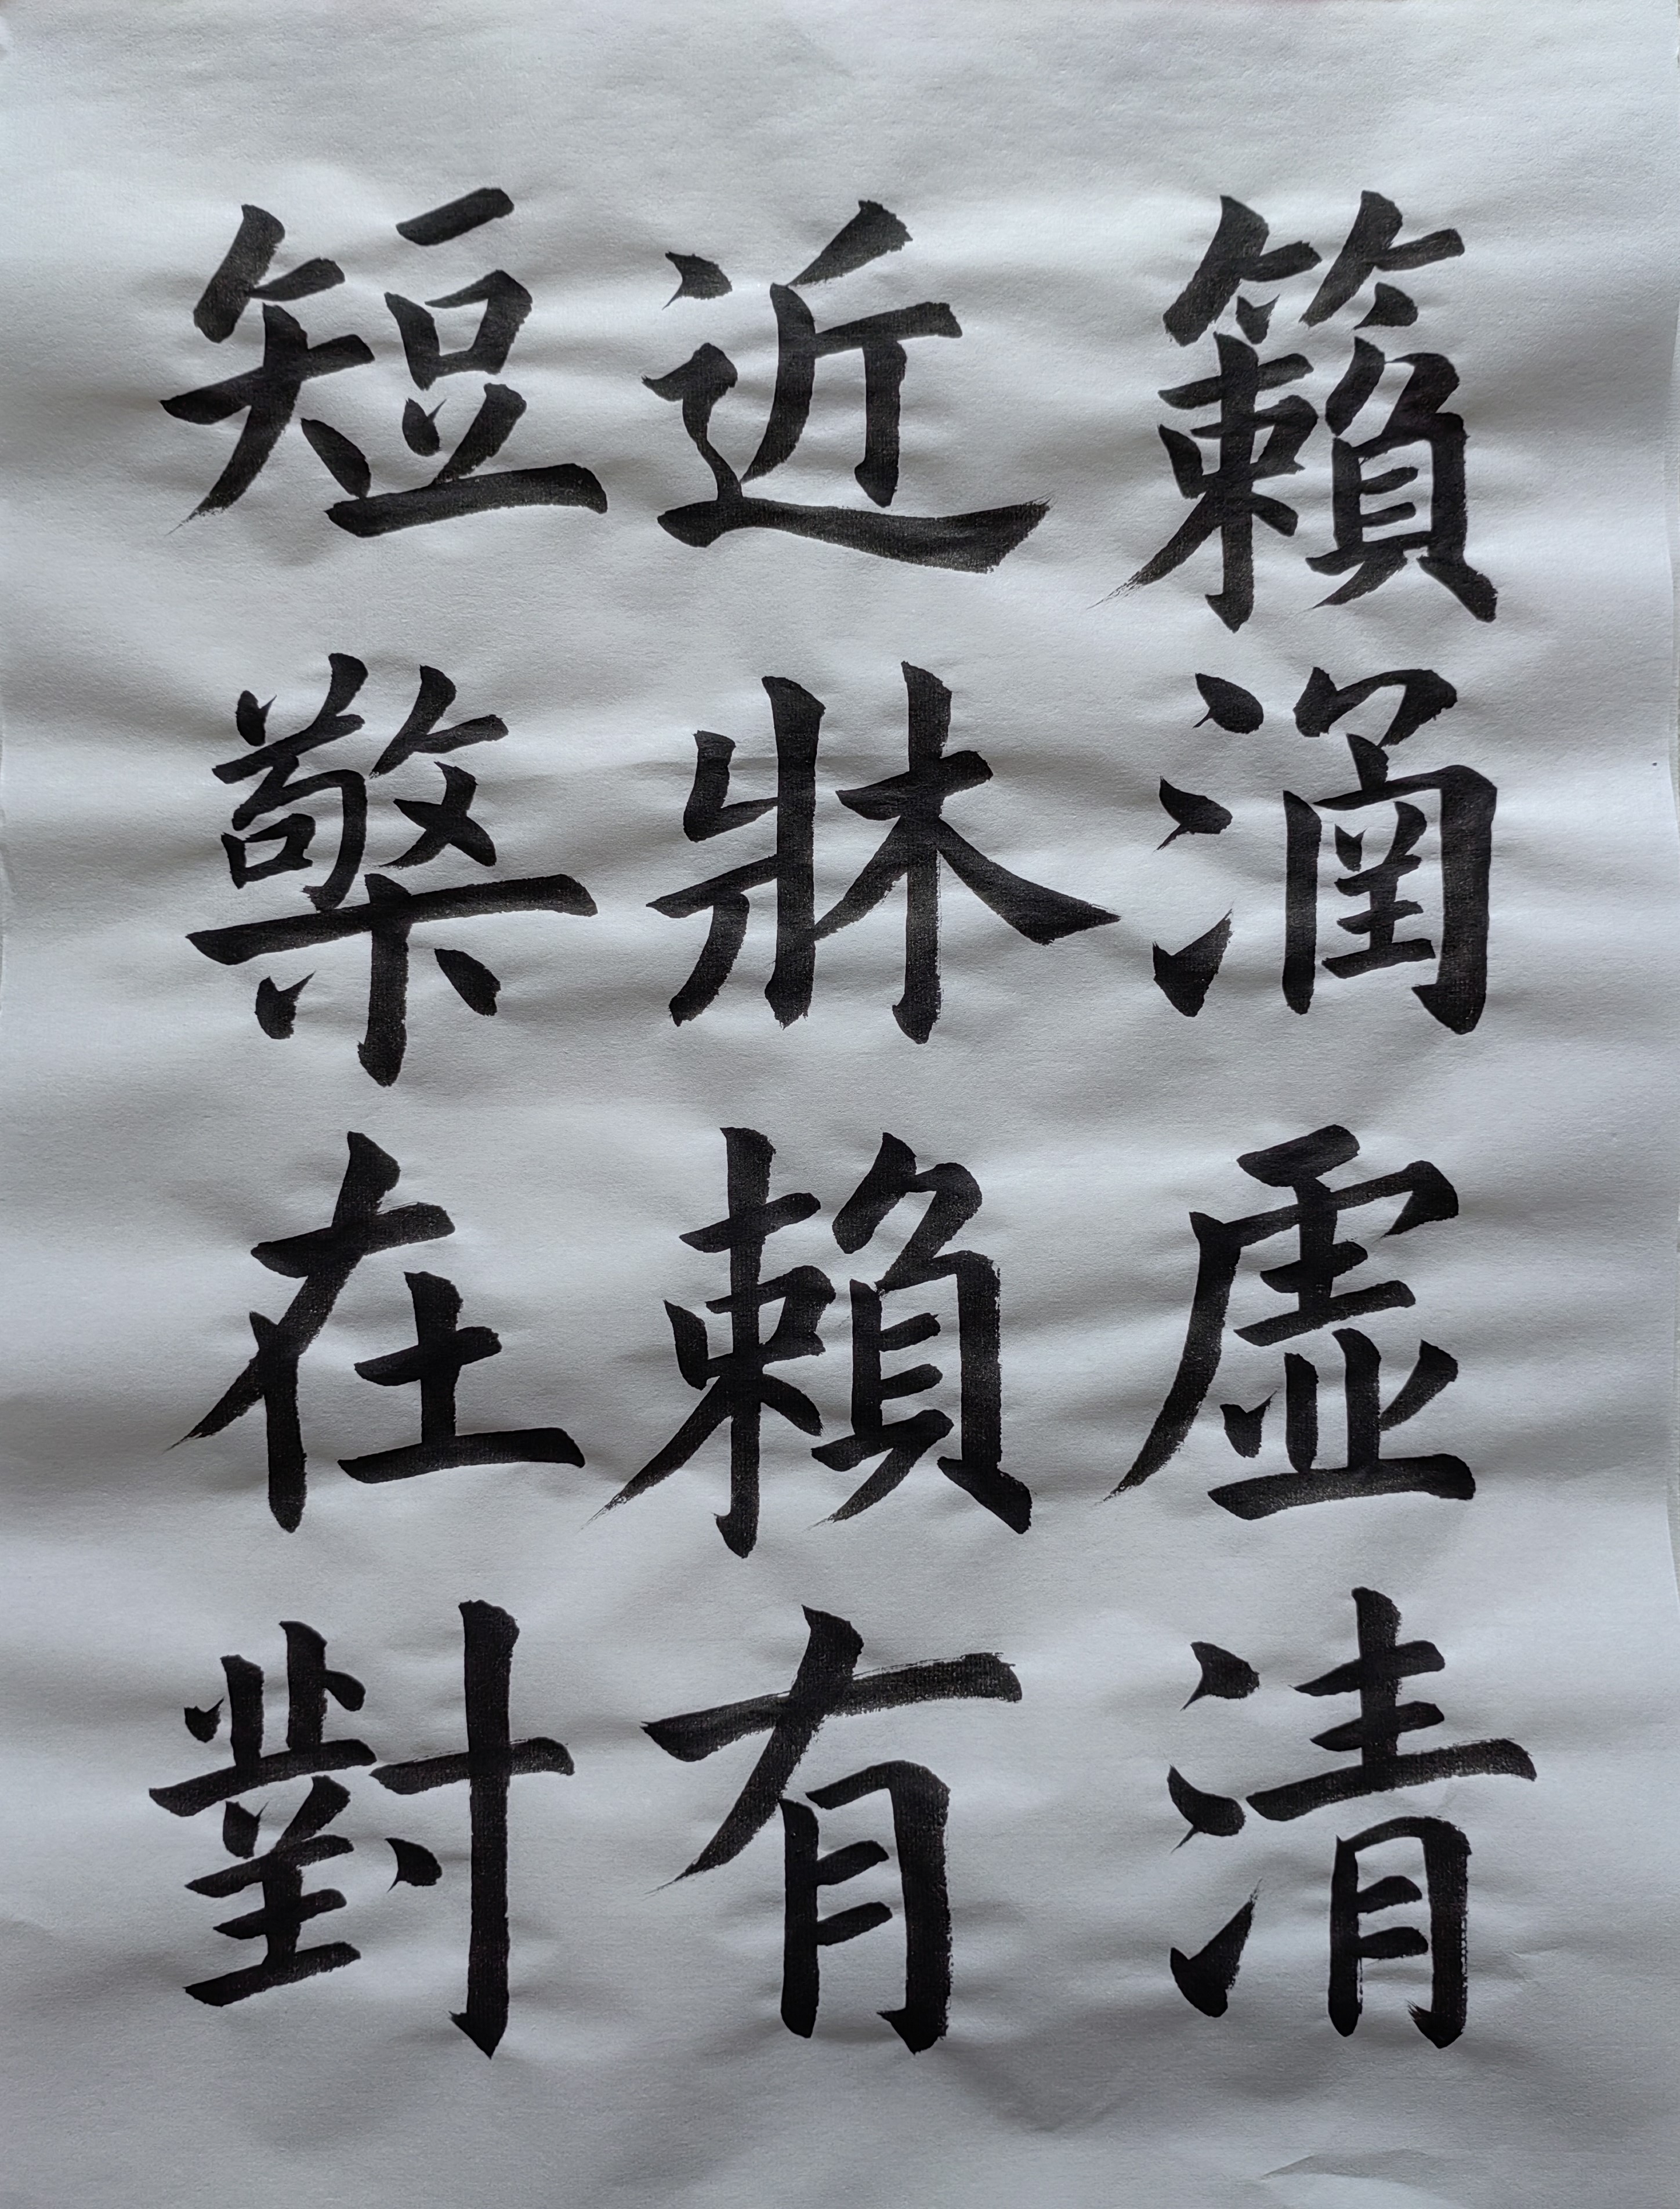 籟涵虛清
近牀賴有
短檠在對